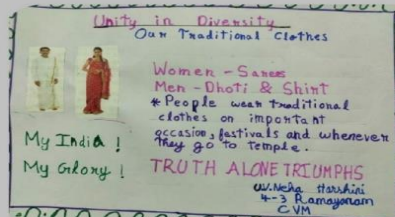 Unity in Diversity
Our Traditional Clothes
Women - Sarees
Men - Dhoti & Shirt
* People wear traditional
clothes on important
occasion, festivals and whenever
they go to temple.
My India !
My Glory !
TRUTH ALONE TRIUMPHS
V. Neha Harshini
4-3 Ramayanam
CVM